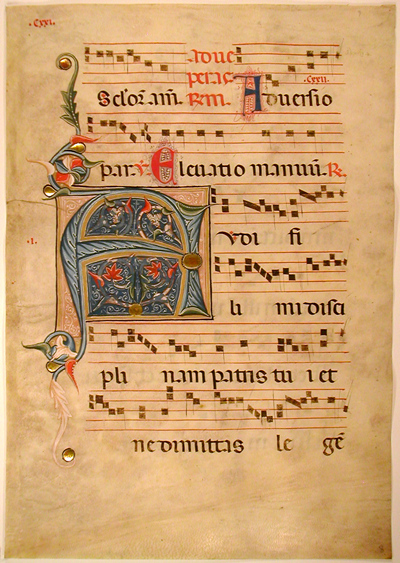 .CXXI.
Adue
peras
.CXXII.
Scloꝝ. am̄. Rm. Aduersio
par. V. Eleuatio manuū. R.
.I.
Audi fi
li mi disci
pli nam patris tu i et
ne dimittas le gē